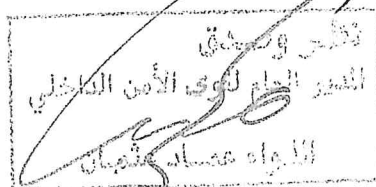 نظر وصدق
المدير العام لقوى الأمن الداخلي
اللواء عماد عثمان